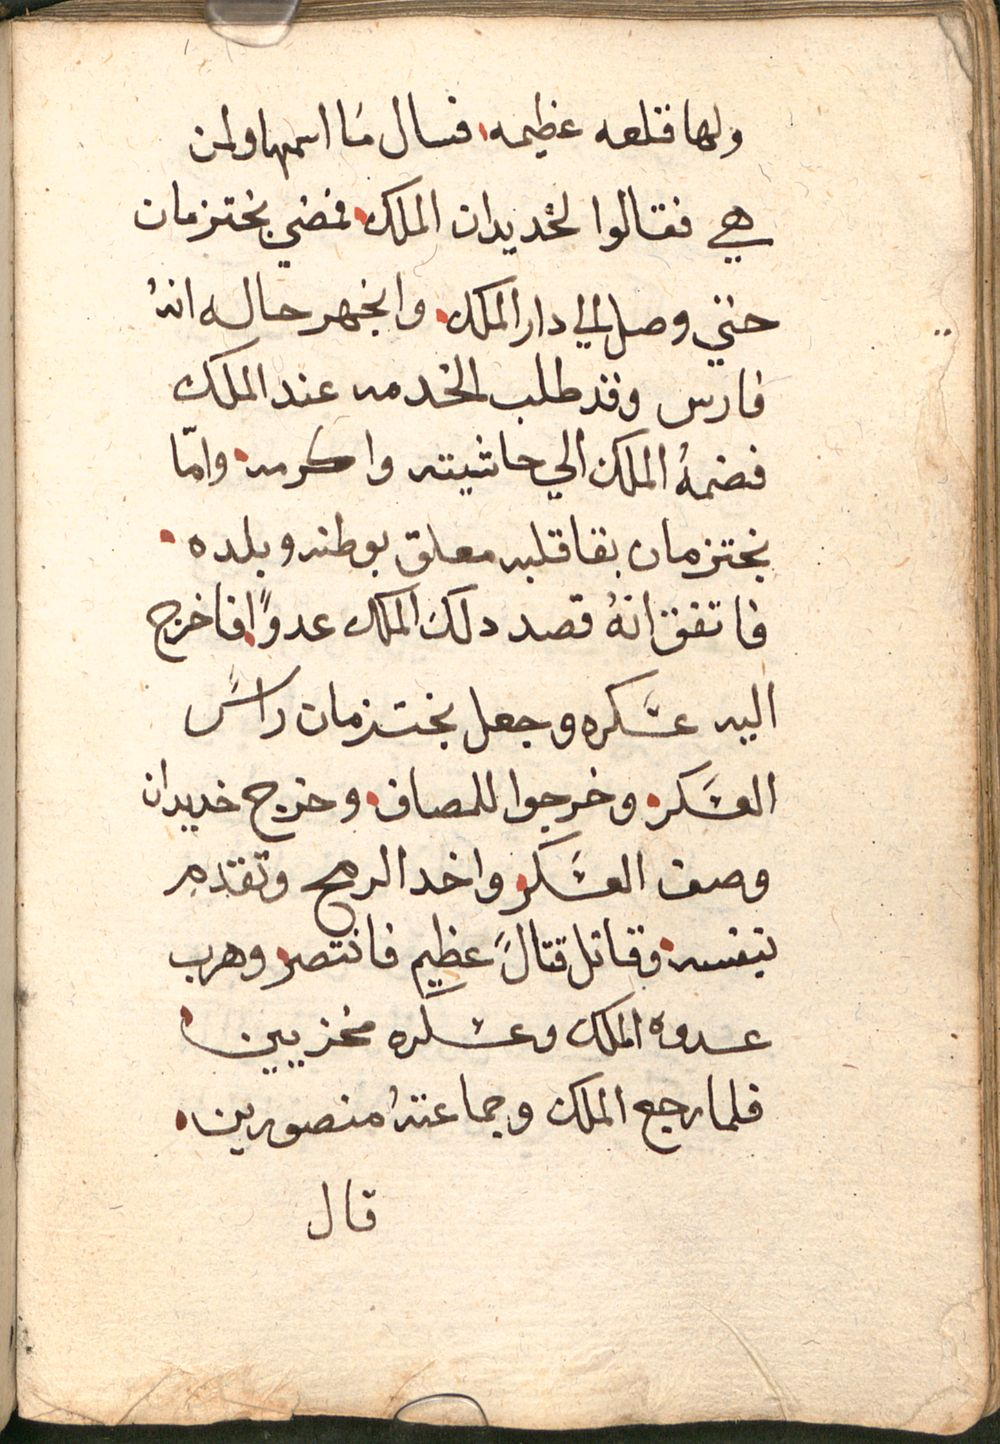 ولها قتلعه عظيمه، فسال ما اسمها ولمن
هي فقالوا لخديدان الملك، فمضي بختزمان
حتي وصل الي دار الملك، واجهر حاله انهُ
فارس وقد طلب الخدمه عند الملك
فضمهُ الملك الي حاشيته واكرمه، وامّا
بختزمان بقا قلبه معلق بوطنه وبلده،
فاتفق انهُ قصد دلك الملك عدوًا، فاخرج
اليه عسكره وجعل بختزمان راس
العسكر، وخرجوا للمصاف، وخرج خديدان
وصف العسكر، واخد الرمح وتقدم
بنفسه، وقاتل قتالً عظيم فانتصر، وهرب
عدوه الملك وعسكره مخزيين،
فلما رجع الملك وجماعتهُ منصورين،
قال